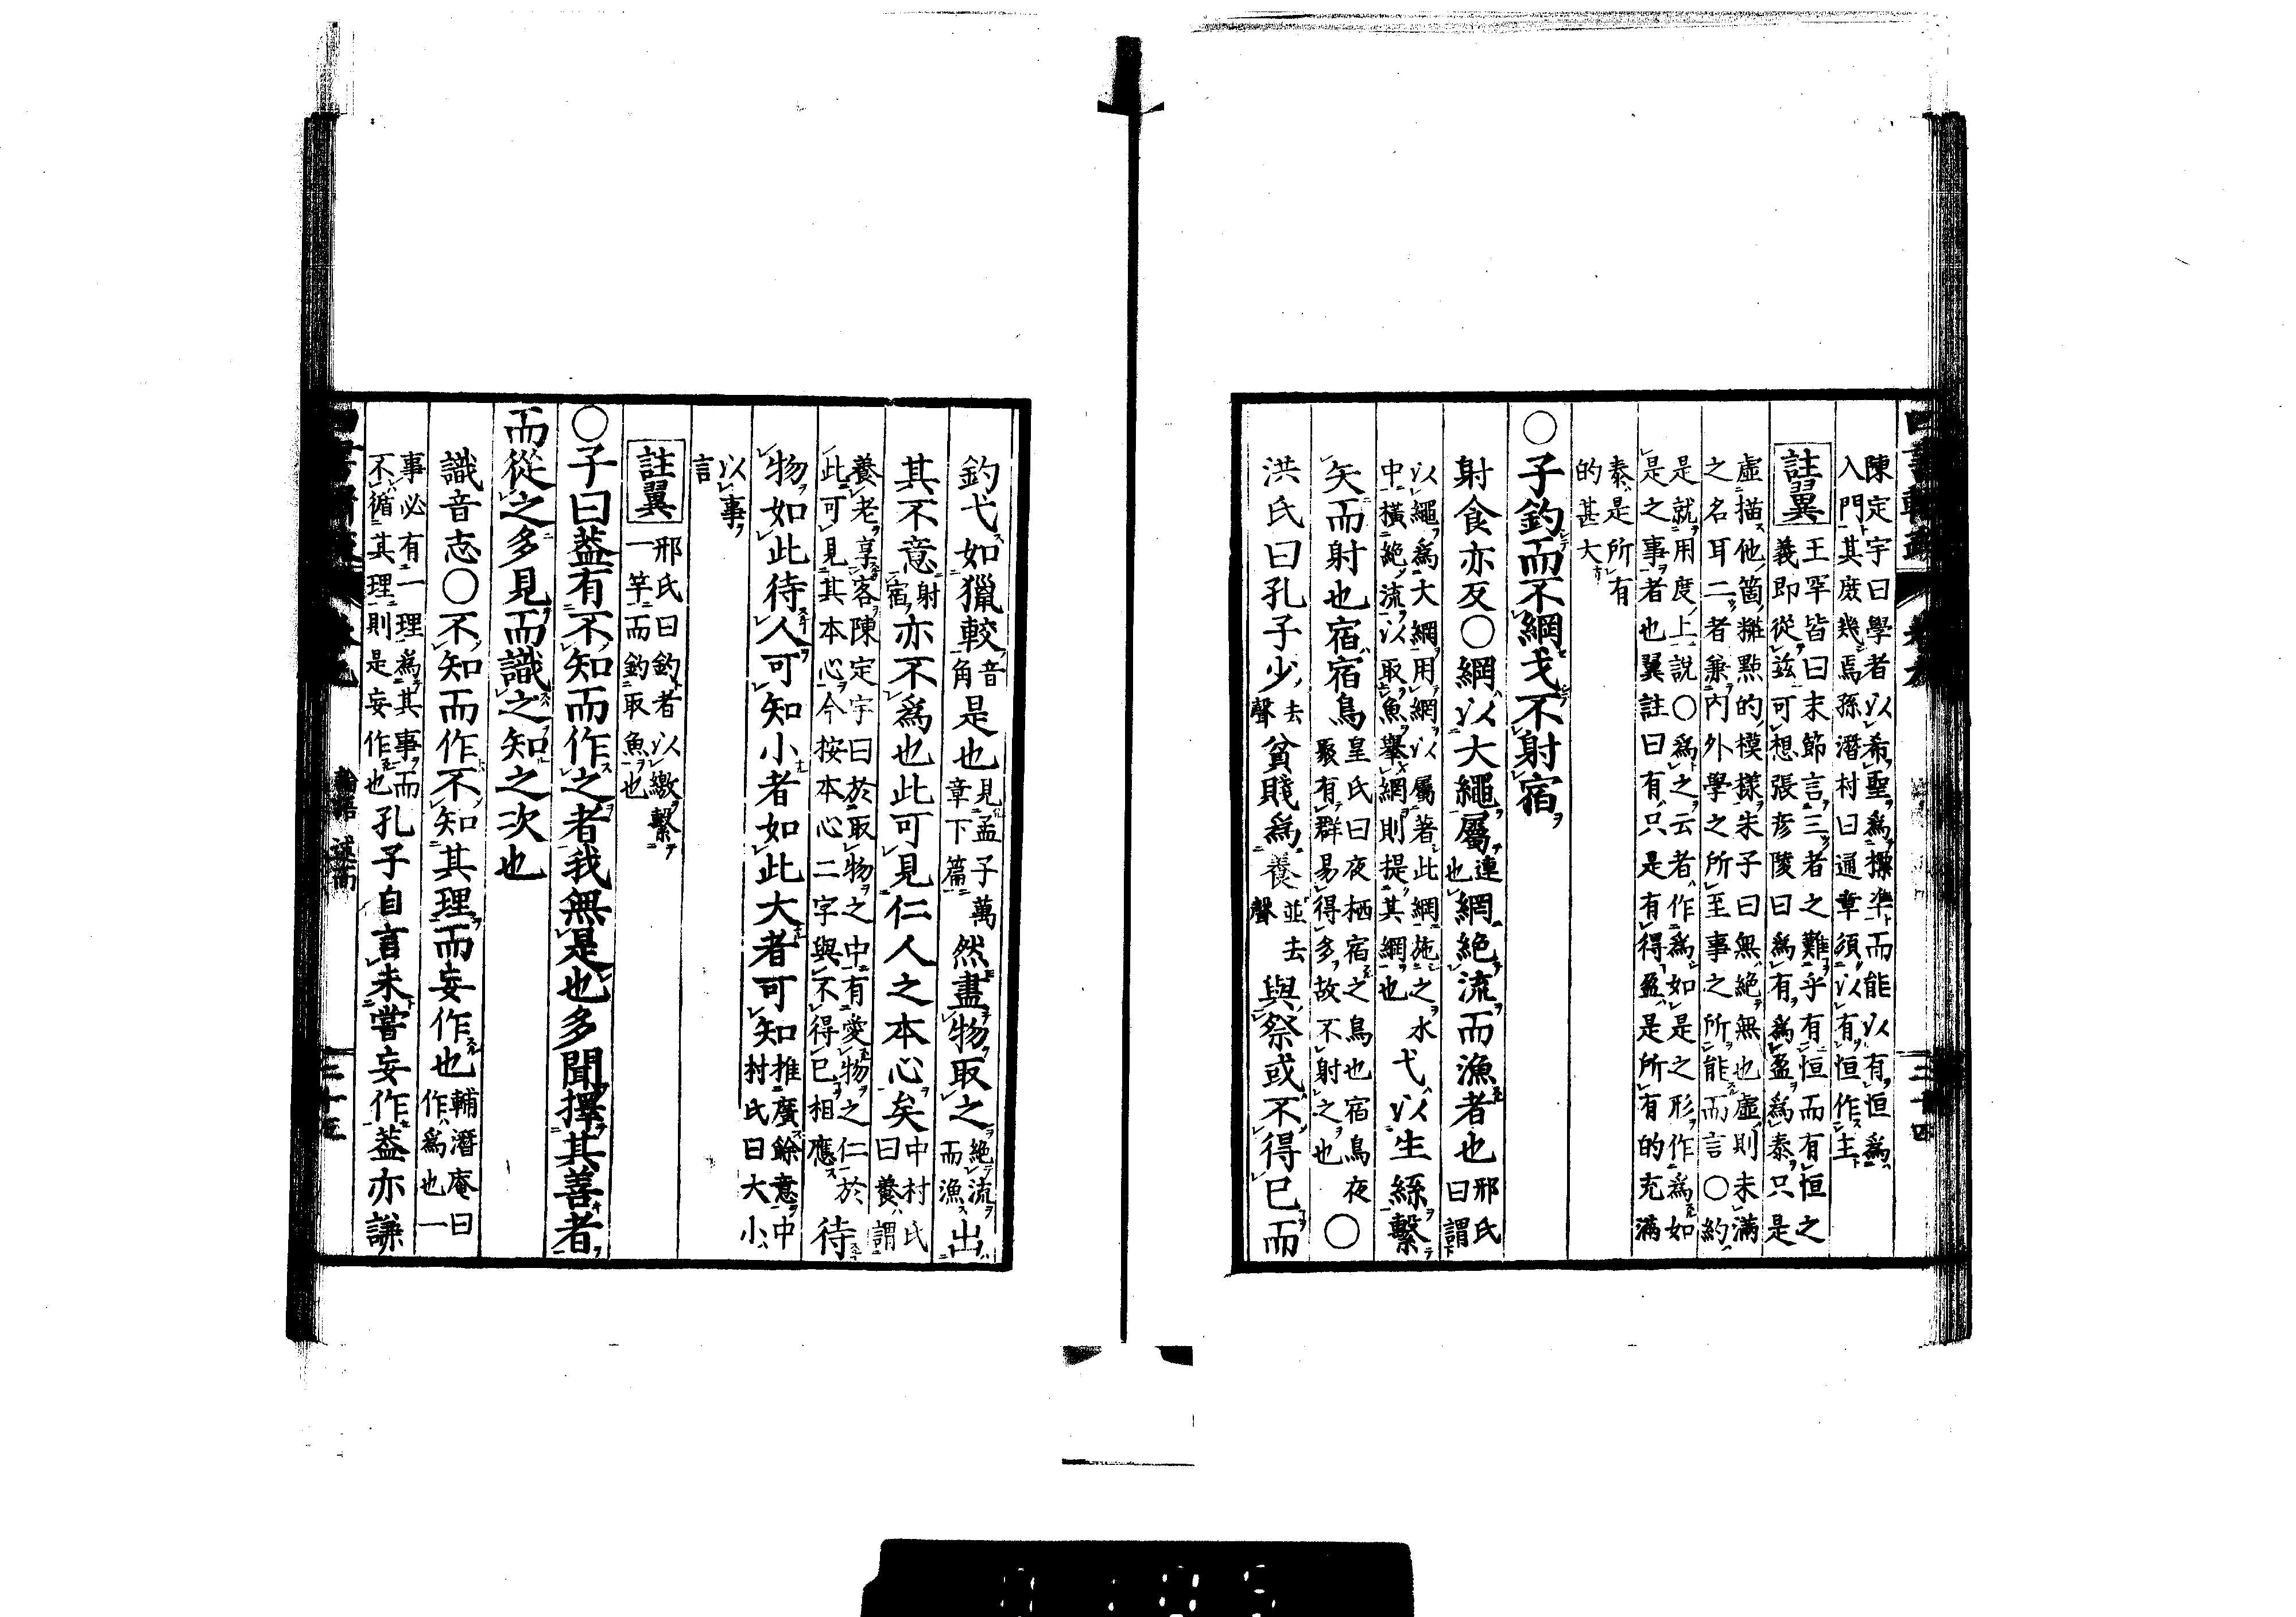 陳定宇曰學者以希聖爲標準而能以有恒爲
入門其庶幾焉孫潛村曰通章須以有恒作主
註翼
王罕皆曰末節言三者之難乎有恒而有恒之
義即從茲可想張彥陵曰爲有爲盈爲泰只是
虛描他箇粧點的模樣朱子曰無絶無也虛則未滿
之名耳二者兼内外學之所至事之所能而言○約
是就用度上說○爲之云者作爲如是之形作爲如
是之事者也翼註曰有只是有得盈是所有的充滿
泰是所有
的甚大
○子釣而不綱弋不射宿
射食亦反○綱以大繩屬
連
也
網絶流而漁者也
邢氏
曰謂
以繩爲大綱用網以屬著此綱施之水
中橫絶流以取魚擧網則提其綱也
弋以生絲繫
矢而射也宿宿鳥
皇氏曰夜栖宿之鳥也宿鳥夜
聚有群易得多故不射之也
○
洪氏曰孔子少
去
聲
貧賤爲養
並去
聲
與祭或不得已而
釣弋如獵較
音
角
是也
見孟子萬
章下篇
然盡物取之
絶流
而漁
出
其不意
射
宿
亦不爲也此可見仁人之本心矣
中村氏
曰養謂
養老享客陳定宇曰於取物之中有愛物之仁於
此可見其本心今按本心二字與不得已相應
待
物如此待人可知小者如此大者可知
推廣餘意中
村氏曰大小
以事
言
註翼
邢氏曰釣者以繳繫
一竿而釣取魚也
○子曰葢有不知而作之者我無是也多聞擇其善者
而從之多見而識之知之次也
識音志○不知而作不知其理而妄作也
輔潛庵曰
作爲也一
事必有一理爲其事而
不循其理則是妄作也
孔子自言未嘗妄作葢亦謙
論語 述而